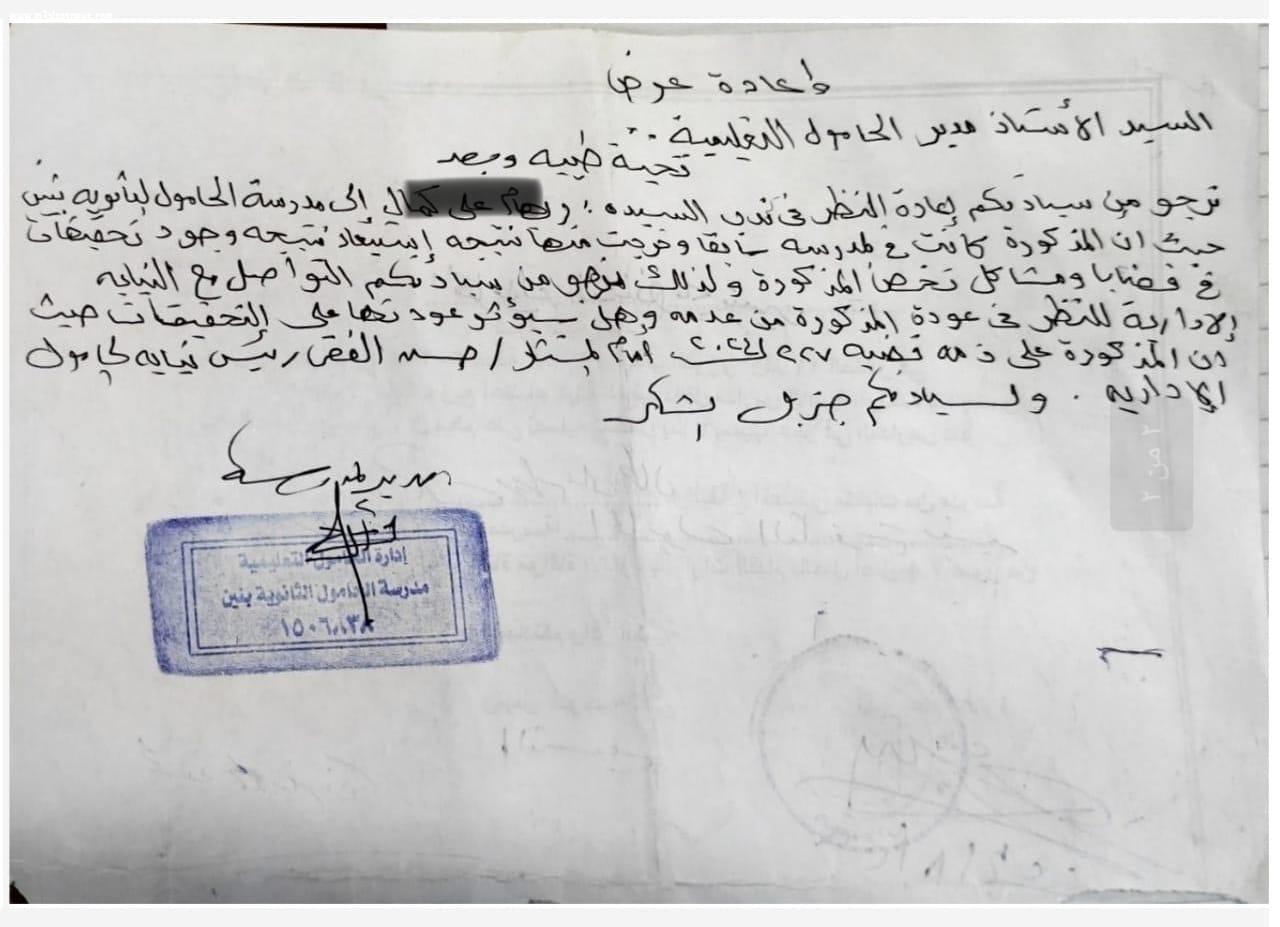 إعادة عرض
السيد الأستاذ مدير الحامول التعليمية
تحية طيبه وبعد
نرجو من سيادتكم إعادة النظر فى ندب السيده : على كمال إلى مدرسة الحامول الثانويه بنين
حيث ان المذكورة كانت فى المدرسه سابقا وخرجت منها نتيجه إستبعاد نتيجه وجود تحقيقات
فى قضايا ومشاكل تخص المذكورة ولذلك نرجو من سيادتكم التواصل مع النيابه
الإدارية للنظر فى عودة المذكورة من عدمه وهل سيؤثر عودتها على التحقيقات حيث
أن المذكورة على ذمه قضيه ٢٢٧ أمام المستشار / حسن الفقى رئيس نيابه الحامول
الإداريه . ولسيادتكم جزيل الشكر
مدير المدرسة
إدارة الحامول التعليمية
مدرسة الحامول الثانوية بنين
٢ من ٢